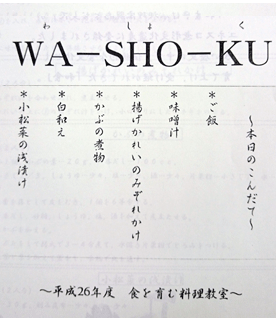 わ しょ く
WA-SHO-KU
～本日のこんだて～
＊ご飯
＊味噌汁
＊揚げかれいのみぞれかけ
＊かぶの煮物
＊白和え
＊小松菜の浅漬け
～平成26年度 食を育む料理教室～